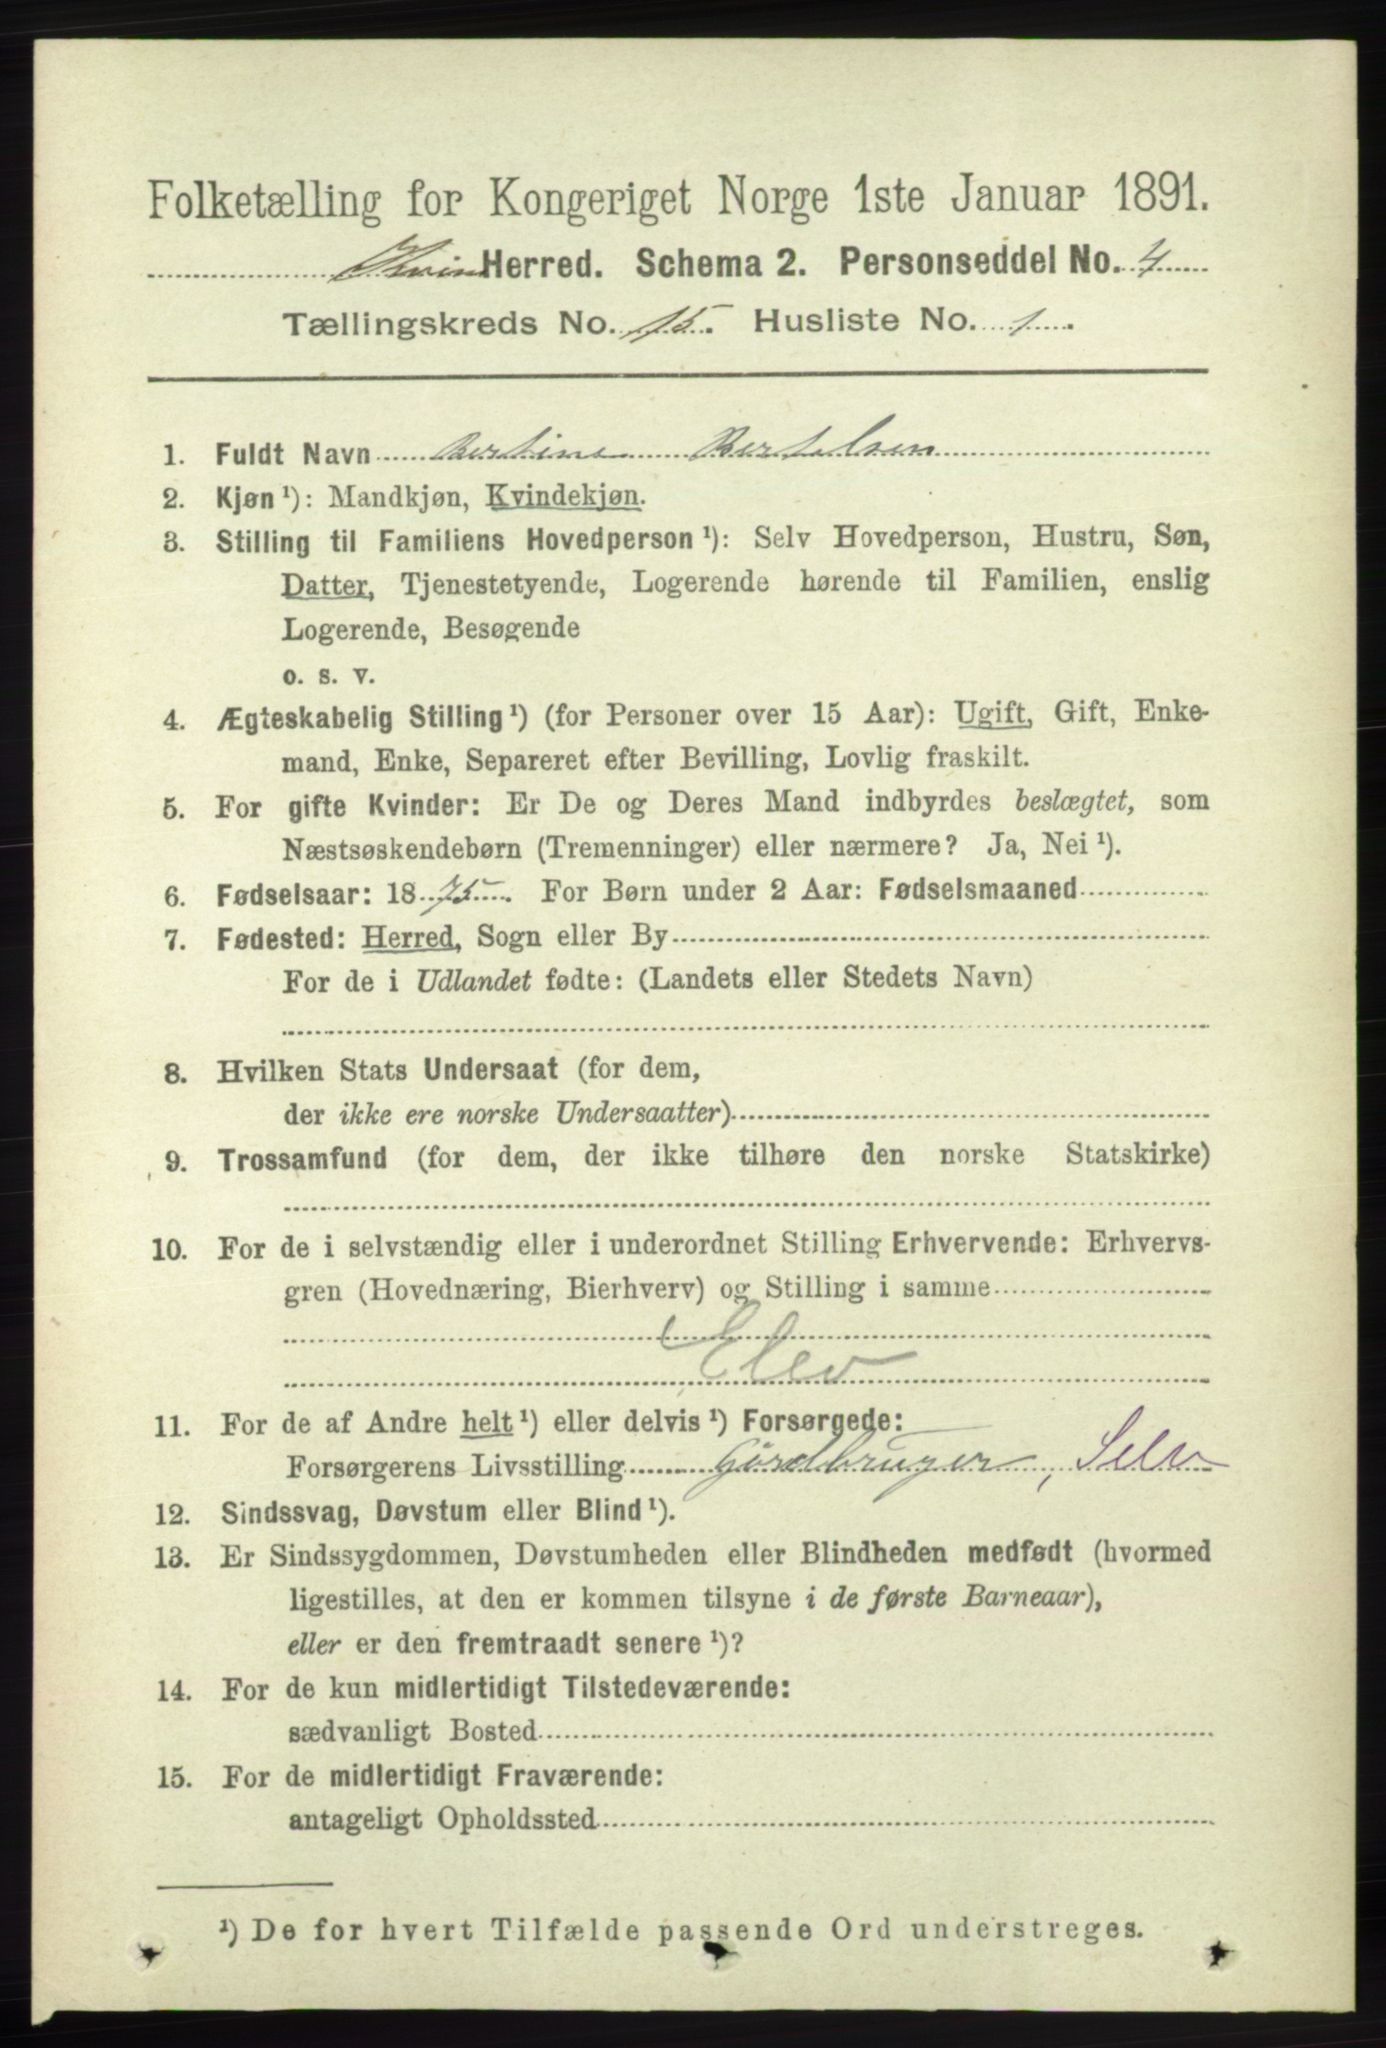 Folketælling for Kongeriget Norge 1ste Januar 1891.
Kvin Herred. Schema 2. Personseddel No. 4
Tællingskreds No. 15. Husliste No. 1.
1. Fuldt Navn Bertine Bertelsen
2. Kjøn ¹): Mandkjøn, Kvindekjøn.
3. Stilling til Familiens Hovedperson ¹): Selv Hovedperson, Hustru, Søn,
Datter, Tjenestetyende, Logerende hørende til Familien, enslig
Logerende, Besøgende
o. s. v.
4. Ægteskabelig Stilling ¹) (for Personer over 15 Aar): Ugift, Gift, Enke-
mand, Enke, Separeret efter Bevilling, Lovlig fraskilt.
5. For gifte Kvinder: Er De og Deres Mand indbyrdes beslægtet, som
Næstsøskendebørn (Tremenninger) eller nærmere? Ja, Nei ¹).
6. Fødselsaar: 1875. For Børn under 2 Aar: Fødselsmaaned
7. Fødested: Herred, Sogn eller By
For de i Udlandet fødte: (Landets eller Stedets Navn)
8. Hvilken Stats Undersaat (for dem,
der ikke ere norske Undersaatter)
9. Trossamfund (for dem, der ikke tilhøre den norske Statskirke)
10. For de i selvstændig eller i underordnet Stilling Erhvervende: Erhvervs-
gren (Hovednæring, Bierhverv) og Stilling i samme
Elev
11. For de af Andre helt ¹) eller delvis ¹) Forsørgede:
Forsørgerens Livsstilling Gårdbruger, Selv
12. Sindssvag, Døvstum eller Blind ¹).
13. Er Sindssygdommen, Døvstumheden eller Blindheden medfødt (hvormed
ligestilles, at den er kommen tilsyne i de første Barneaar),
eller er den fremtraadt senere ¹)?
14. For de kun midlertidigt Tilstedeværende:
sædvanligt Bosted
15. For de midlertidigt Fraværende:
antageligt Opholdssted
¹) De for hvert Tilfælde passende Ord understreges.